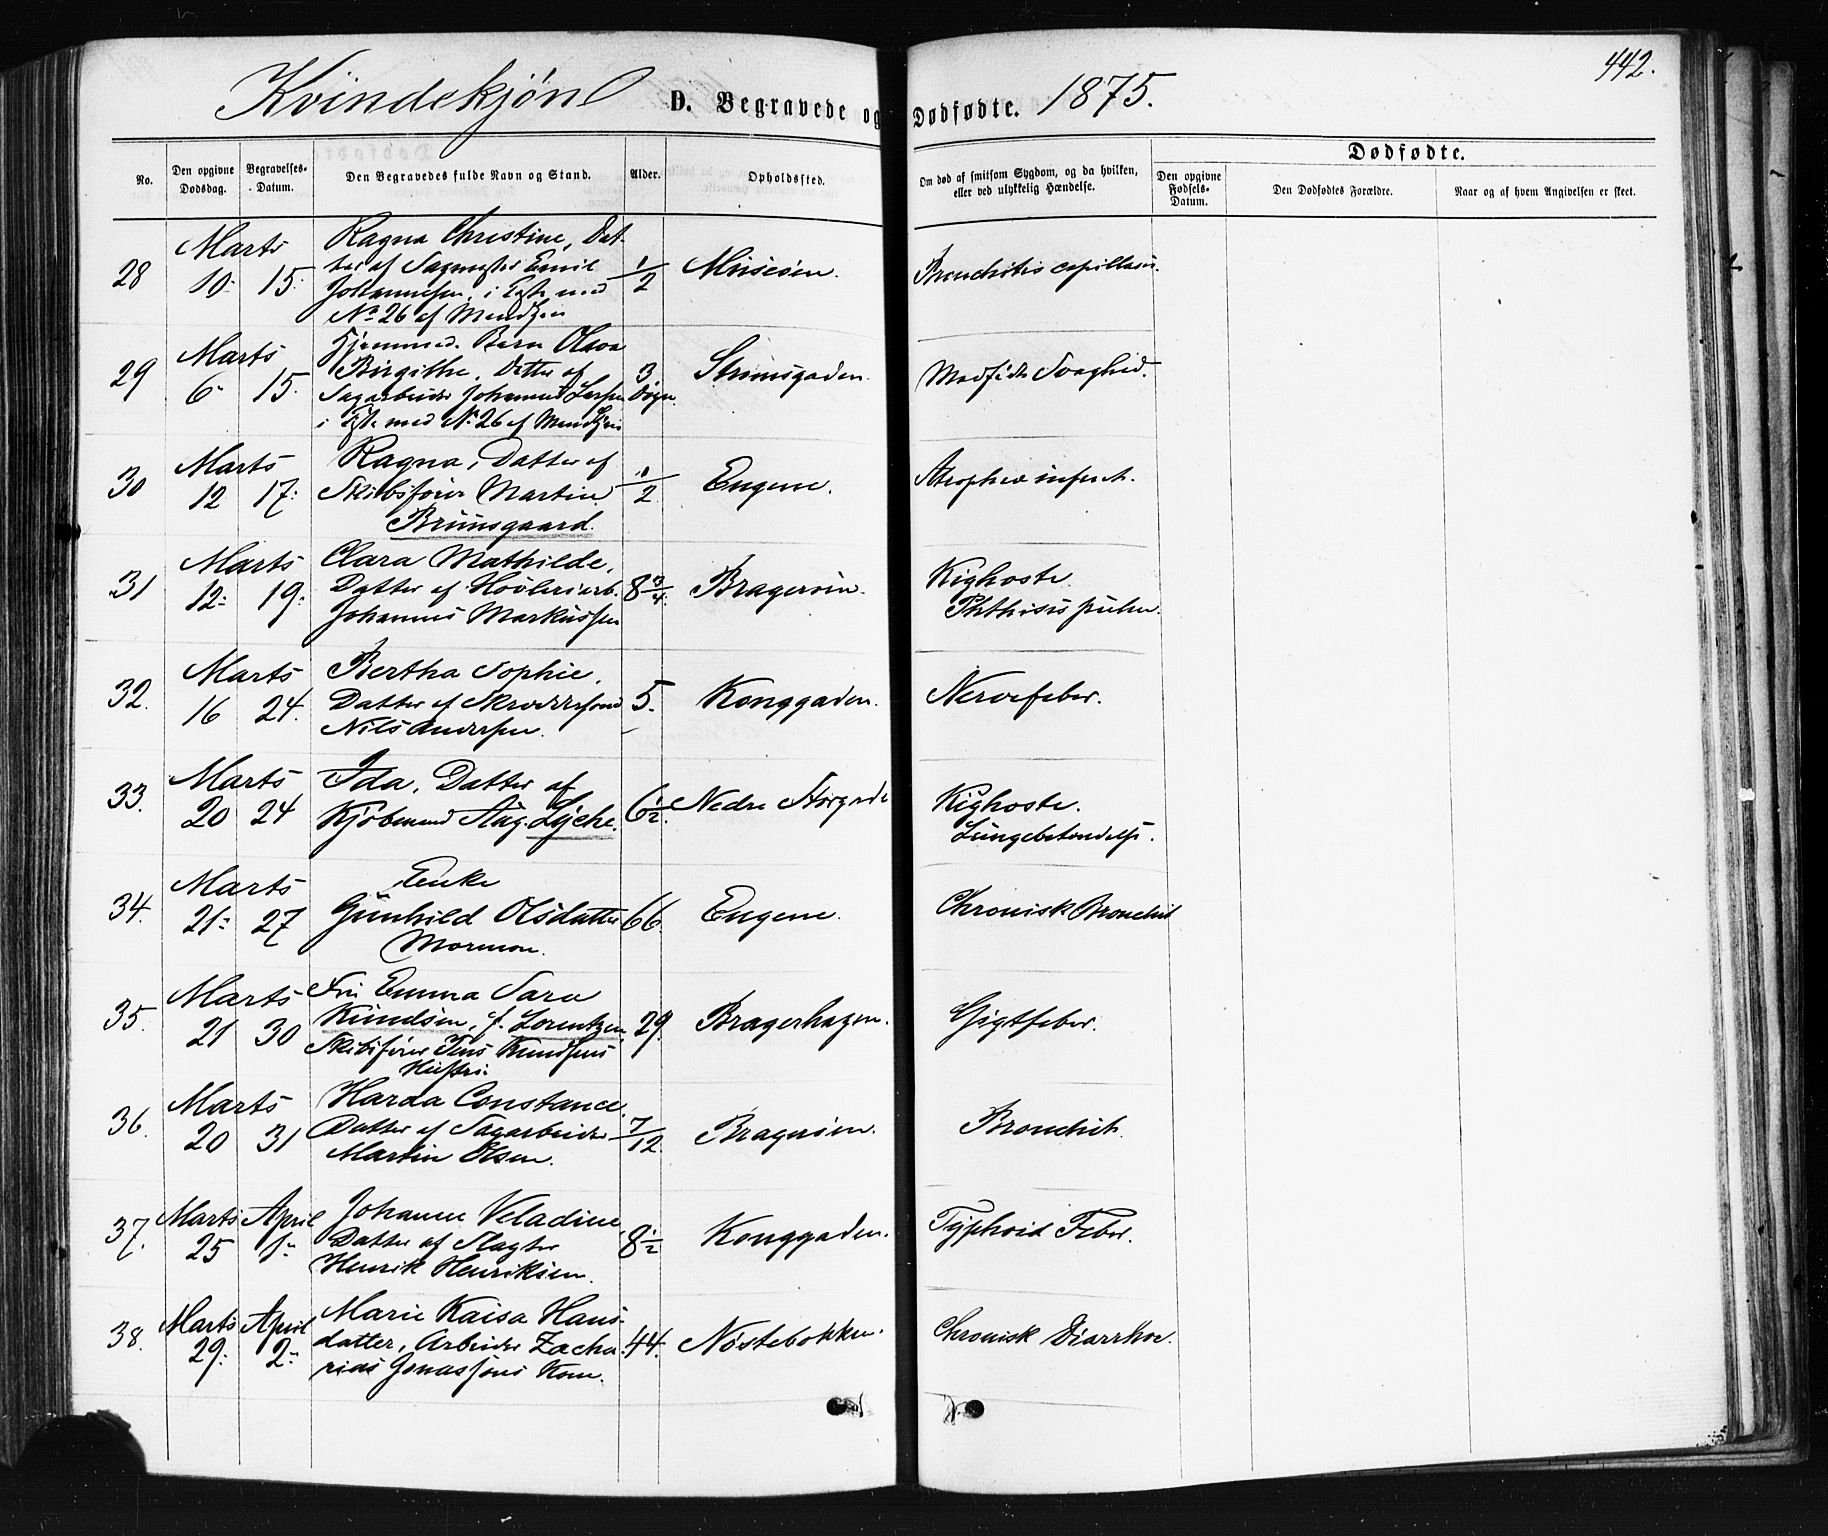 442.
Kvindekjøn D. Begravede og Dødfødte. 1875.
No.
Den opgivne Dødsdag.
Begravelses-Datum.
Den Begravedes fulde Navn og Stand.
Alder.
Opholdssted.
Om død af smitsom Sygdom, og da hvilken,
eller ved ulykkelig Hændelse.
Dødfødte.
Den opgivne Fødsels-Datum.
Den Dødfødtes Forældre.
Naar og af hvem Angivelsen er skeet.
28 Marts 10 15.
Ragna Christine, Dat-
ter af Sagmester Emil
Johannesen, i
No 26 af
1/2
Bronchitis capillaris.
29 Marts 6 15.
Hjemmed. Barn Olava
Birgithe, Datter af
Sagarbeider Johannes Larsen
i med No 26 af
3 Døgn.
Strømsgaden.
Medfødt Svaghed.
30 Marts 12 17.
Ragna, Datter af
Skibsfører Martin
Bruusgaard.
1/2
Engene.
Atrophia infant.
31 Marts 12 19.
Clara Mathilde,
Datter af Høvleriarb.
Johannes Markussen
8 3/4.
Bragerøen.
Kighoste.
Phthisis pulm.
32. Marts 16 24.
Bertha Sophie,
Datter af
Nils Andersen.
5.
Konggaden.
Nervefeber.
33. Marts 20 24
Ida, Datter af
Kjøbmand Aug. Lyche.
6 1/2.
Nedre Storgade
Kighoste.
Lungebetændelse.
34. Marts 21 27
Enke
Gunhild Olsdatter
Mormon.
66.
Engene.
Chronisk Bronchit
35. Marts 21 30
Fru Emma Sara
Knudsen, f. Lorentzen,
Skibsfører Jens Knudsens
Hustru.
29.
Bragerhagen.
Gigtfeber.
36. Marts 20 31
Harda Constance,
Datter af Sagarbeider
Martin Olsen.
7/12
Bragerøen.
Bronchit.
37. Marts 25 April 1
Johanne Veladine,
Datter af Slagter
Henrik Henriksen.
8 1/2
Konggaden.
Typhoid Feber.
38. Marts 29. April 2
Marie Kaisa Hans-
datter, Arbeider Zacha-
rias Jonassøns Kone.
44.
Nøstebakken.
Chronisk Diarrhoe.